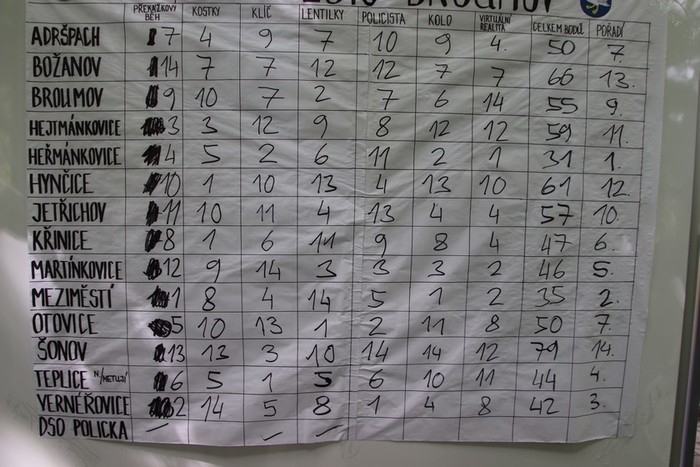 BROUMOV
PŘEKÁŽKOVÝ BĚH KOSTKY KLÍČ LENTILKY POLICISTA KOLO VIRTUÁLNÍ REALITA CELKEM BODŮ POŘADÍ
ADRŠPACH 7 4 9 7 10 9 4. 50 7.
BOŽANOV 14 7 7 12 12 7 7 66 13.
BROUMOV 9 10 7 2 7 6 14 55 9.
HEJTMÁNKOVICE 3 3 12 9 8 12 12 59 11.
HEŘMÁNKOVICE 4 5 2 6 11 2 1 31 1.
HYNČICE 10 1 10 13 4 13 10 61 12.
JETŘICHOV 11 10 11 4 13 4 4 57 10.
KŘINICE 8 1 6 11 9 8 4 47 6.
MARTÍNKOVICE 12 9 14 3 3 3 2 46 5.
MEZIMĚSTÍ 1 8 4 14 5 1 2 35 2.
OTOVICE 5 10 13 1 2 11 8 50 7.
ŠONOV 13 13 3 10 14 14 12 79 14.
TEPLICE N/METUJÍ 6 5 1 5 6 10 11 44 4.
VERNÉŘOVICE 2 14 5 8 1 4 8 42 3.
DSO POLICKA — — —